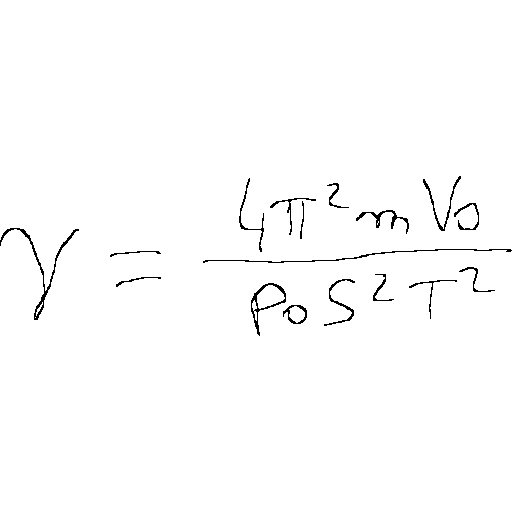 γ = \frac{4π^2 m V_0}{P_0 S^2 T^2}